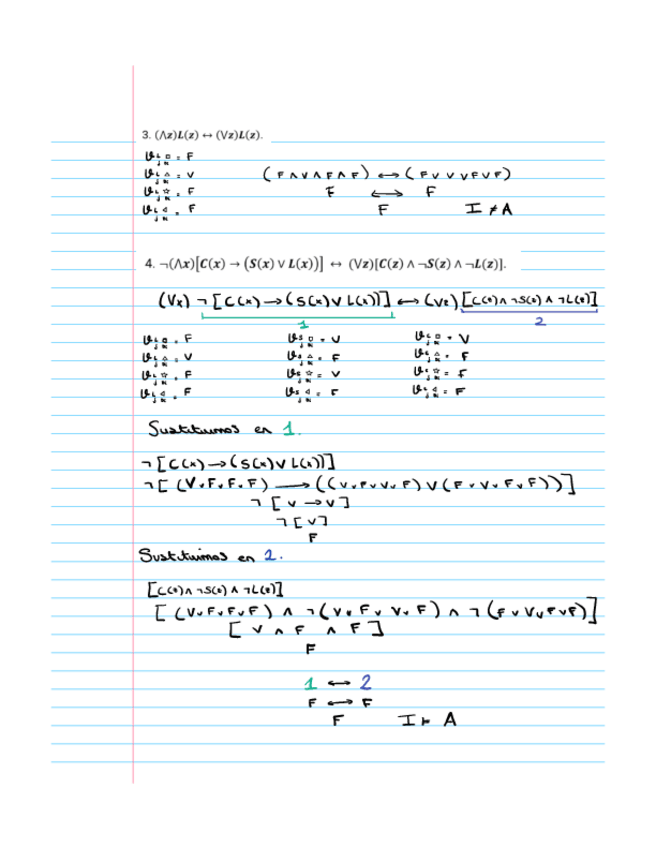 3. (⋀z)L(z) ↔ (⋁z)L(z).
= F
= V ( F ∧ V ∧ F ∧ F ) ↔ ( F ∨ V ∨ F ∨ F )
= F F ↔ F
= F F I ⊭ A
4. ¬(⋀x)[C(x) → (S(x) ∨ L(x))] ↔ (⋁z)[C(z) ∧ ¬S(z) ∧ ¬L(z)].
(Vx) ¬ [C(x) → (S(x) ∨ L(x))] ↔ (Vz) [C(z) ∧ ¬S(z) ∧ ¬L(z)]
1 2
= F = V = V
= V = F = F
= F = V = F
= F = F = F
Sustituimos en 1.
¬ [C(x) → (S(x) ∨ L(x))]
¬ [ (V ∨ F ∨ F ∨ F) → ((V ∨ F ∨ V ∨ F) ∨ (F ∨ V ∨ F ∨ F))]
¬ [ V → V ]
¬ [V]
F
Sustituimos en 2.
[C(z) ∧ ¬S(z) ∧ ¬L(z)]
[ (V ∨ F ∨ F ∨ F) ∧ ¬ (V ∨ F ∨ V ∨ F) ∧ ¬ (F ∨ V ∨ F ∨ F)]
[ V ∧ F ∧ F ]
F
1 ↔ 2
F ↔ F
F I ⊨ A